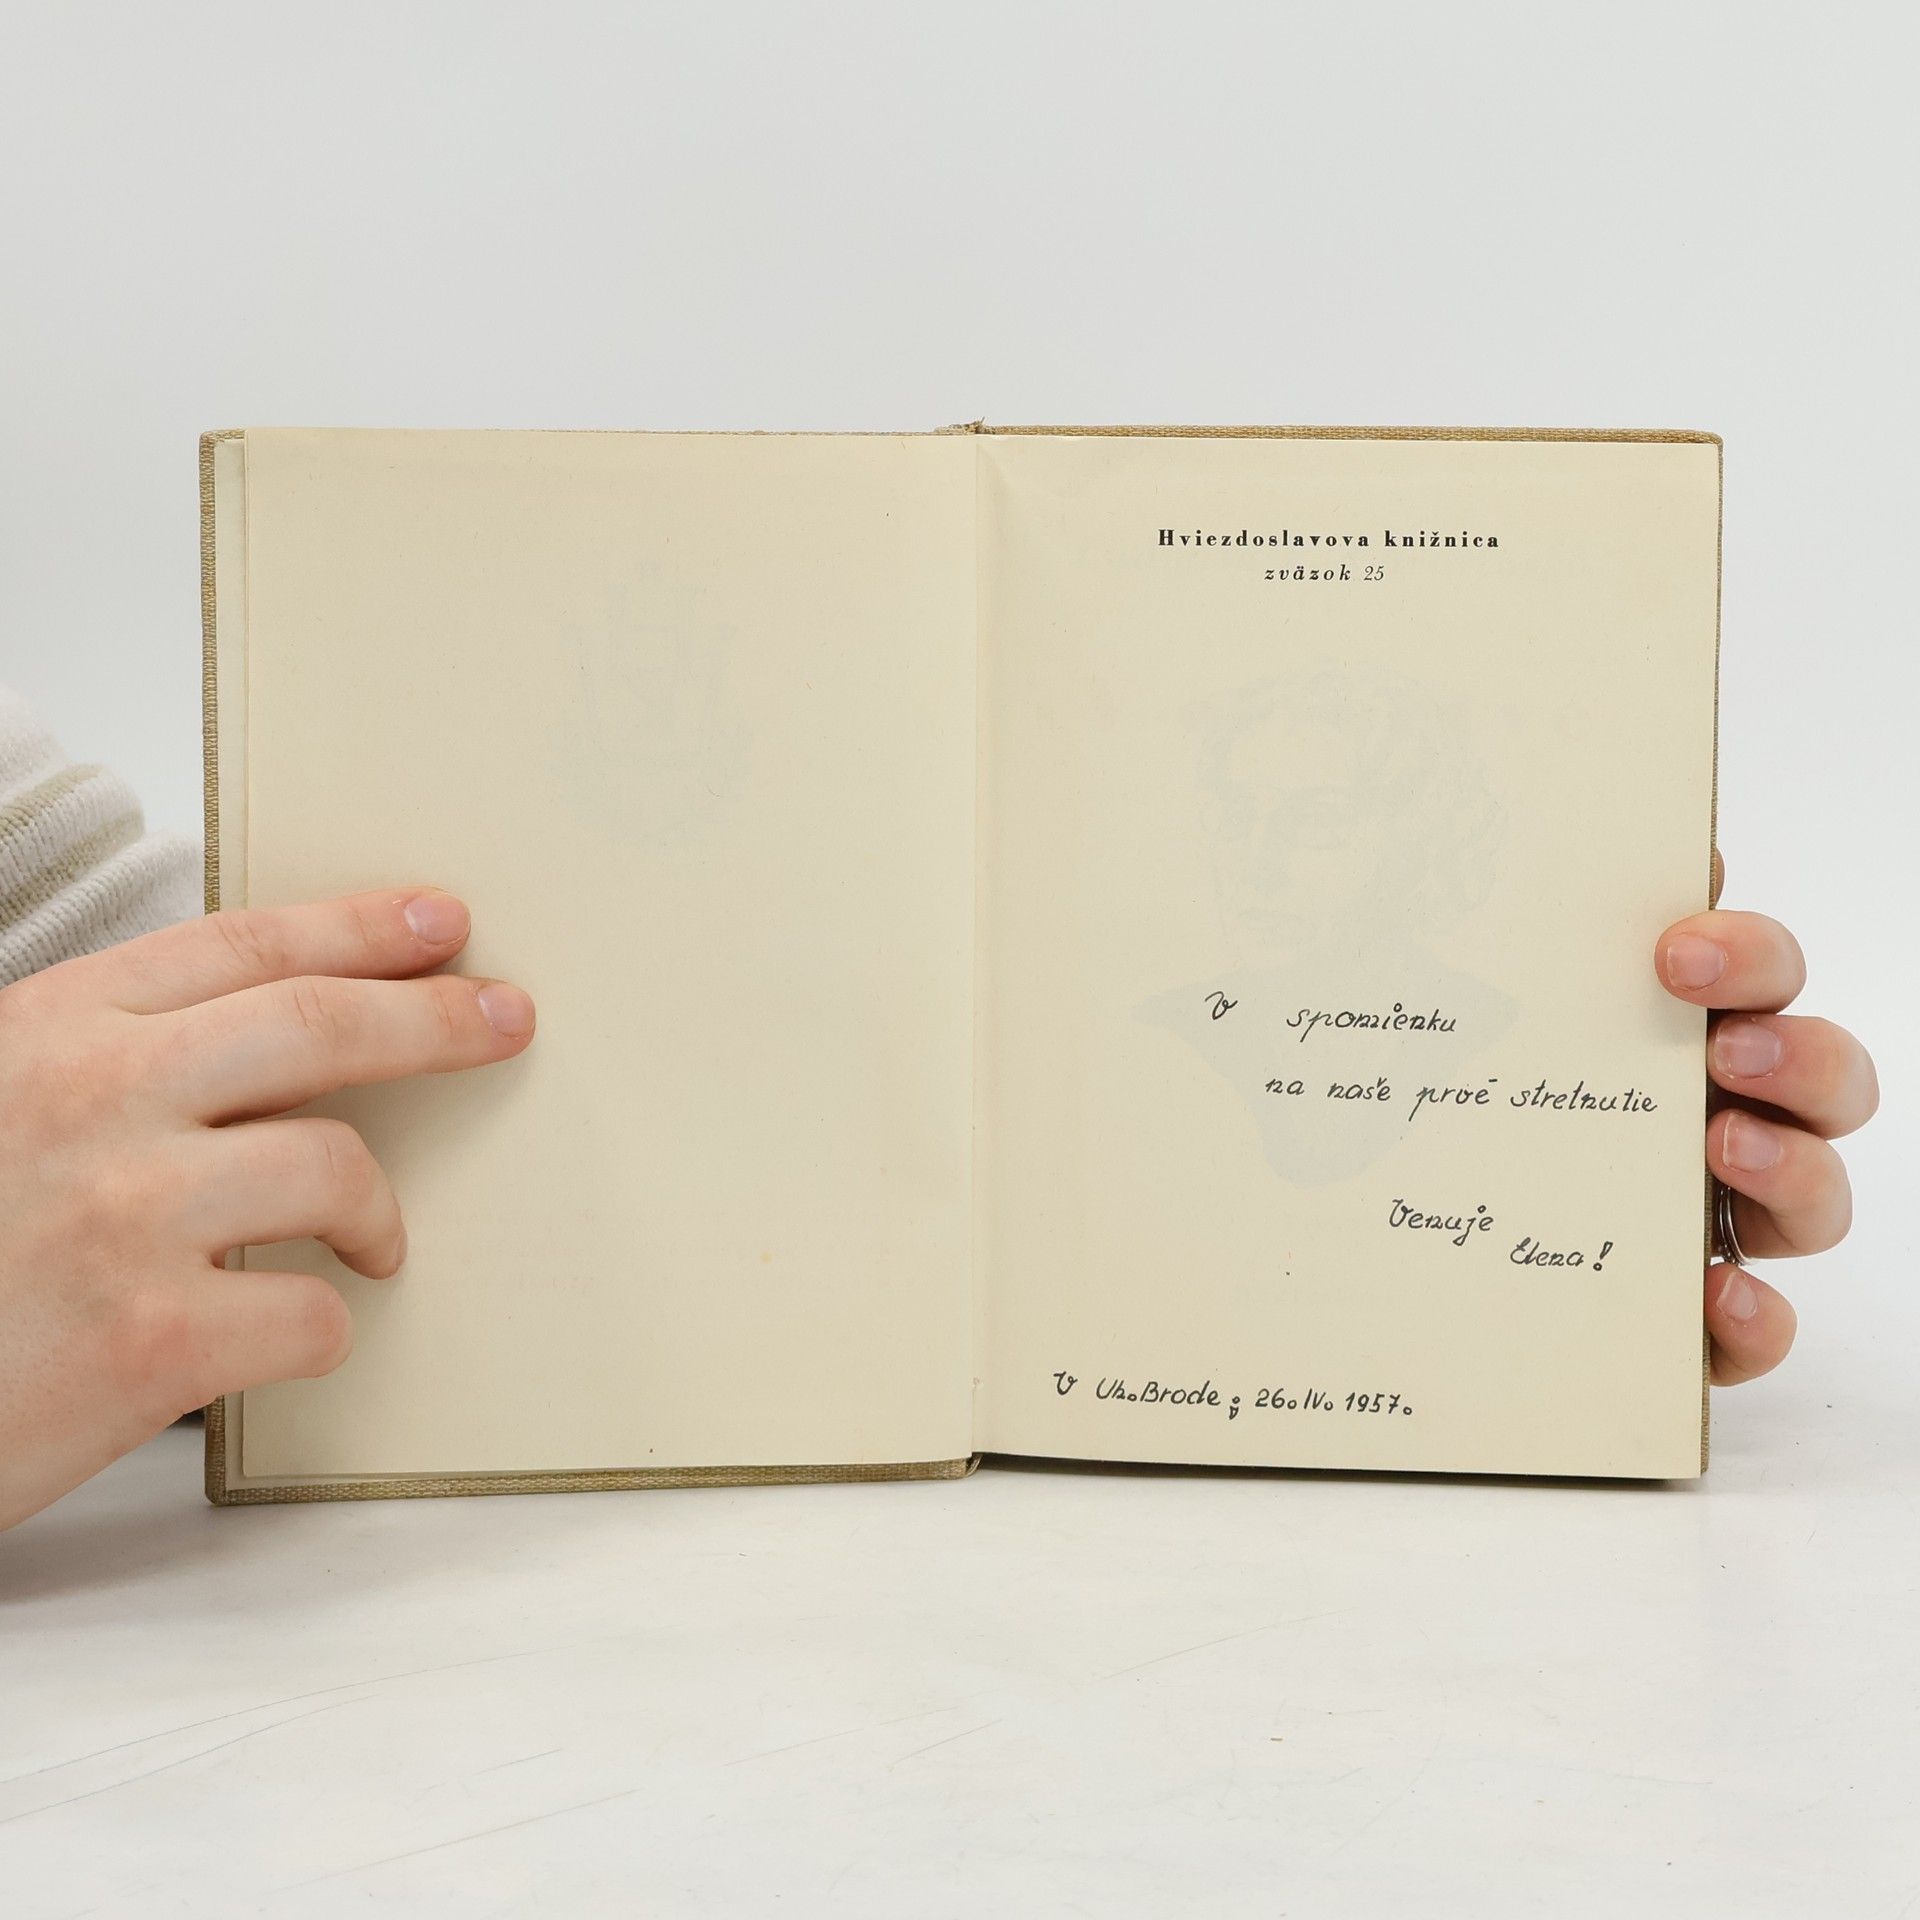 Hviezdoslavova knižnica
zväzok 25
V spomienku
na naše prvé stretnutie
Venuje
Elena!
V Uh. Brode; 26. IV. 1957.